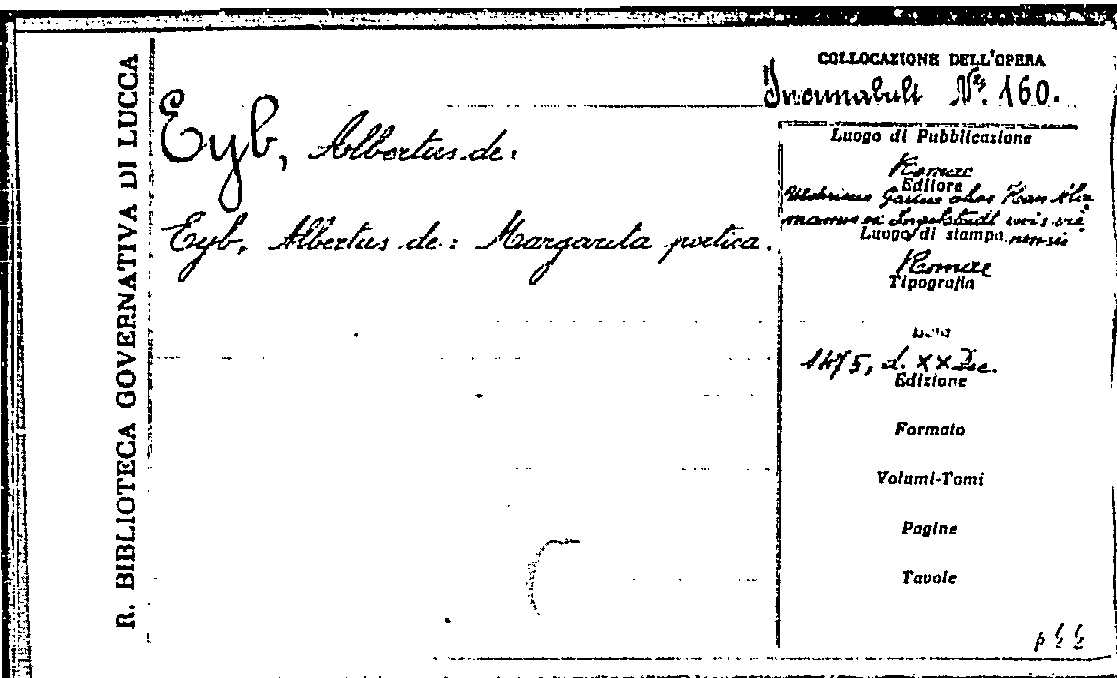 R. BIBLIOTECA GOVERNATIVA DI LUCCA
COLLOCAZIONE DELL'OPERA
Incunabuli Nr. 160.
Eyb, Albertus de:
Eyb, Albertus de: Margarita poetica.
Luogo di Pubblicazione
Romae
Editore
Udalricus Gallus alias Han
mannus ex Ingelstadt
Luogo di stampa
Romae
Tipografia
Data
1475, d. XX Dec.
Edizione
Formato
Volumi-Tomi
Pagine
Tavole